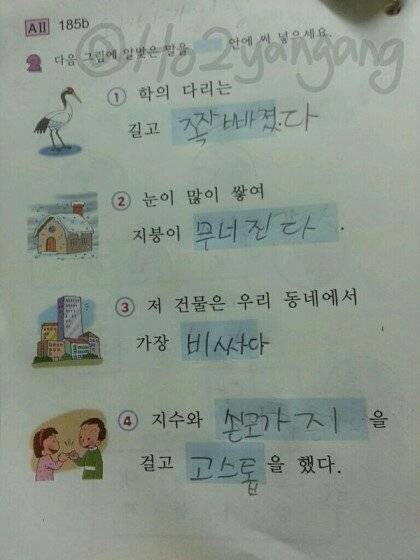 AⅡ 185b
@1162yangang
2 다음 그림에 알맞은 말을 안에 써 넣으세요.
① 학의 다리는
길고 쫙빠졌다
② 눈이 많이 쌓여
지붕이 무너진다.
③ 저 건물은 우리 동네에서
가장 비싸다
④ 지수와 손모가지을
걸고 고스톱을 했다.